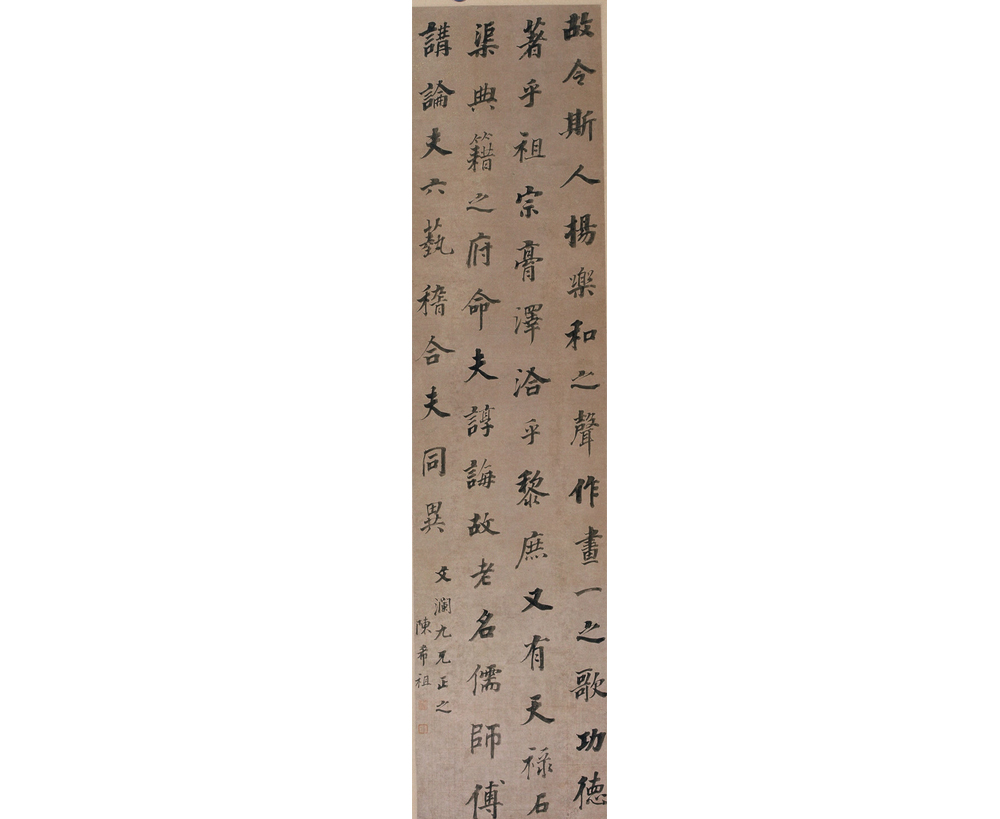 故令斯人楊樂和之聲作畫一之歌功德
著乎祖宗膏澤洽乎黎庶又有天禄石
渠典籍之府命夫諄誨故老名儒師傅
講論夫六藝稽合夫同異
文瀾九兄正之
陳希祖